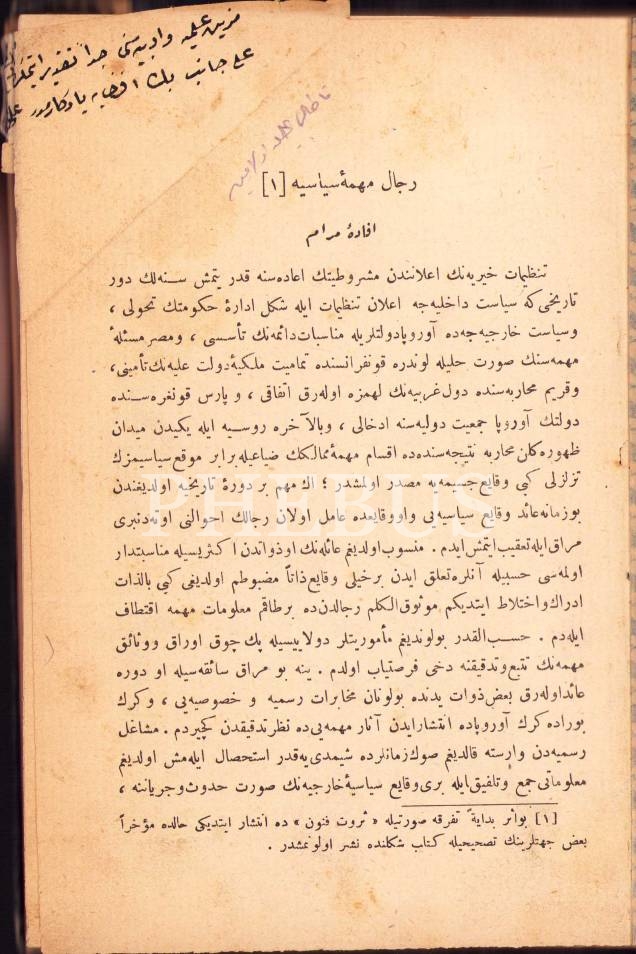 مزيت علميه وادبيه‌سنى جداً تقدير ايتديكم
على جانب بك افندى‌يه يادكارمدر
رجال مهمهٔ سیاسیه [۱]
افادهٔ مرام
تنظیمات خیریه‌نك اعلانندن مشروطیتك اعاده‌سنه قدر یتمش سنه‌لك دور
تاریخی‌که سیاست داخلیه‌جه اعلان تنظیمات ایله شکل ادارهٔ حکومتك تحولی ،
وسیاست خارجیه‌جه‌ده آوروپا دولتلریله مناسبات دائمه‌نك تأسسی ، ومصر مسئلهٔ
مهمه‌سنك صورت حلیله لوندره قونفرانسنده تمامیت ملکیهٔ دولت علیه‌نك تأمینی ،
وقریم محاربه‌سنده دول غربیه‌نك لهمزه اوله‌رق اتفاقی ، و پارس قونغره‌سنده
دولتك آوروپا جمعیت دولیه‌سنه ادخالی ، وبالآخره روسیه ایله یکیدن میدان
ظهوره کلن محاربه نتیجه‌سنده‌ده اقسام مهمهٔ ممالکك ضیاعیله برابر موقع سیاسیمزك
تزلزلی کبی وقایع جسیمه‌یه مصدر اولمشدر ؛ اك مهم بر دورهٔ تاریخیه اولدیغندن
بو زمانه عائد وقایع سیاسیه‌یی و او وقایعده عامل اولان رجالك احوالنی اوته‌دنبری
مراق ایله تعقیب ایتمش ایدم . منسوب اولدیغم عائله‌نك او ذواتدن اکثریسیله مناسبتدار
اولمه‌سی حسبیله آنلره تعلق ایدن برخیلی وقایع ذاتاً مضبوطم اولدیغی کبی بالذات
ادراك واختلاط ایتدیکم موثوق‌الکلم رجالدن‌ده برطاقم معلومات مهمه اقتطاف
ایله‌دم . حسب‌القدر بولوندیغم مأموریتلر دولاییسیله پك چوق اوراق ووثائق
مهمه‌نك تتبع وتدقیقنه دخی فرصتیاب اولدم . ینه بو مراق سائقه‌سیله او دوره
عائد اوله‌رق بعض ذوات یدنده بولونان مخابرات رسمیه و خصوصیه‌یی ، وکرك
بوراده کرك آوروپاده انتشار ایدن آثار مهمه‌یی‌ده نظر تدقیقدن کچیردم . مشاغل
رسمیه‌دن وارسته قالدیغم صوك زمانلرده شیمدی‌یه‌قدر استحصال ایله‌مش اولدیغم
معلوماتی جمع وتلفیق ایله بری وقایع سیاسیهٔ خارجیه‌نك صورت حدوث وجریاننه ،
[۱] بو اثر بدایةً تفرقه صورتیله « ثروت فنون » ده انتشار ایتدیکی حالده مؤخراً
بعض جهتلرینك تصحیحیله کتاب شکلنده نشر اولونمشدر .
PHEBUS